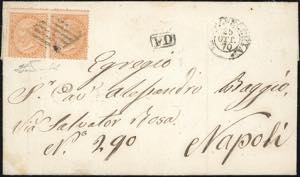 PD
25
OTT
70
Egregio
Sr. Cav. Alessandro Baggio
Via Salvator Rosa
No. 290
Napoli